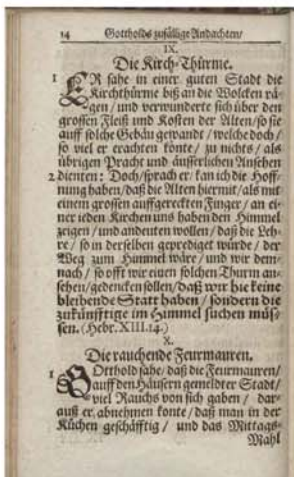 14 Gottholds zufällige Andachten/
IX.
Die Kirch-Thürme.
1 ER sahe in einer guten Stadt die
Kirchthürme biß an die Wolcken ra-
gen / und verwunderte sich über den
grossen Fleiß und Kosten der Alten / so sie
auff solche Gebäu gewandt / welche doch /
so viel er erachten konte / zu nichts / als
übrigen Pracht und äusserlichen Ansehen
2 dienten: Doch / sprach er / kan ich die Hoff-
nung haben / daß die Alten hiermit / als mit
einem grossen auffgereckten Finger / an ei-
ner jeden Kirchen uns haben den Himmel
zeigen / und andeuten wollen / daß die Leh-
re / so in derselben geprediget würde / der
Weg zum Himmel wäre / und wir dem-
nach / so offt wir einen solchen Thurm an-
sehen / gedencken sollen / daß wir hie keine
bleibende Statt haben / sondern die
zukünfftige im Himmel suchen müs-
sen. (Hebr. XIII. 14.)
X.
Die rauchende Feurmauren.
1 GOtthold sahe / daß die Feurmauren /
auff den Häusern gemeldter Stadt /
viel Rauchs von sich gaben / dar-
auß er abnehmen konte / daß man in der
Küchen geschäfftig / und das Mittags-
Mahl